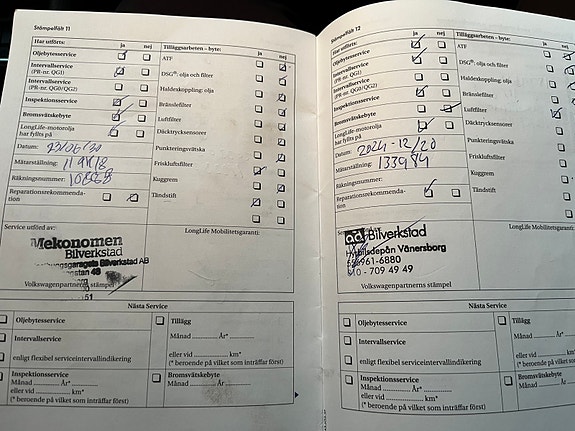 Stämpelfält 11
Har utförts: ja nej
Oljebytesservice
Intervallservice
(PR-nr. QG1)
Intervallservice
(PR-nr. QG0/QG2)
Inspektionsservice
Bromsvätskebyte
LongLife-motorolja
har fyllts på
Datum:
Mätarställning:
Räkningsnummer:
Reparationsrekommenda-
tion
Tilläggsarbeten – byte: ja nej
ATF
DSG®: olja och filter
Haldexkoppling: olja
Bränslefilter
Luftfilter
Däcktrycksensorer
Punkteringsvätska
Friskluftsfilter
Kuggrem
Tändstift
Service utförd av:
LongLife Mobilitetsgaranti:
Mekonomen
Bilverkstad
Bilverkstad AB
Volkswagenpartnerns stämpel
51
Nästa Service
Oljebytesservice
Intervallservice
enligt flexibel serviceintervallindikering
Inspektionsservice
Månad ............ År*............
eller vid ............ km*
(* beroende på vilket som inträffar först)
Tillägg
Månad ............ År*............
eller vid ............ km*
(* beroende på vilket som inträffar först)
Bromsvätskebyte
Månad ............ År............
Stämpelfält 12
Har utförts: ja nej
Oljebytesservice
Intervallservice
(PR-nr. QG1)
Intervallservice
(PR-nr. QG0/QG2)
Inspektionsservice
Bromsvätskebyte
LongLife-motorolja
har fyllts på
Datum: 2024-12/20
Mätarställning: 133984
Räkningsnummer:
Reparationsrekommenda-
tion
Tilläggsarbeten – byte: ja nej
ATF
DSG®: olja och filter
Haldexkoppling: olja
Bränslefilter
Luftfilter
Däcktrycksensorer
Punkteringsvätska
Friskluftsfilter
Kuggrem
Tändstift
LongLife Mobilitetsgaranti:
ad Bilverkstad
Vänersborg
961-6880
010 - 709 49 49
Volkswagenpartnerns stämpel
Nästa Service
Oljebytesservice
Intervallservice
enligt flexibel serviceintervallindikering
Inspektionsservice
Månad ............ År*............
eller vid ............ km*
(* beroende på vilket som inträffar först)
Tillägg
Månad ............ År*............
eller vid ............ km*
(* beroende på vilket som inträffar först)
Bromsvätskebyte
Månad ............ År............